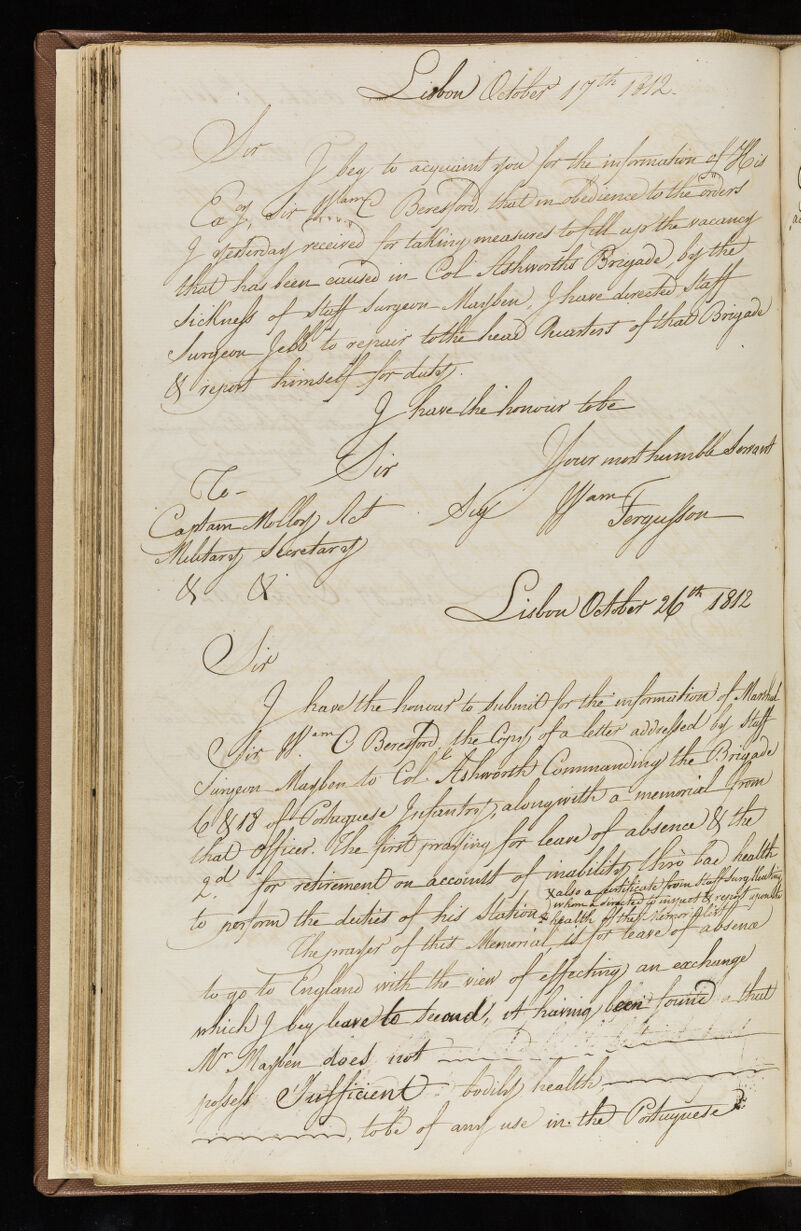 Lisbon October 17th 1812.
Sir
I beg to acquaint you for the information of His
Excy, Sir Wam C Beresford, that in obedience to the orders
I yesterday received for taking measures to fill up the vacancy
that has been caused in Col Ashworths Brigade, by the
sickness of Staff Surgeon Mayben, I have directed Staff
Surgeon Jebb to repair to the head Quarters of that Brigade
& report himself for duty.
I have the honour to be
Sir
Your most humble Servant
To
Captain Molloy Act
Sig Wam Fergusson
Military Secretary
& &
Lisbon October 26th 1812
Sir
I have the honour to submit for the information of Marshal
Sir Wam C Beresford, the Copy of a letter addressed by Staff
Surgeon Mayben to Col Ashworth Commanding the Brigade
6 & 18 of Portuguese Infantry, along with a memorial from
that Officer. The first praying for leave of absence & the
2d for retirement on account of inability thro bad health
x also a certificate from Staff Surg
whom I directed to inspect & report upon the
to perform the duties of his Station x health of that Memorialist
The prayer of this Memorial is for leave of absence
to go to England with the view of effecting an exchange
which I beg leave to second, it having been found that
Mr Mayben does not
possess Sufficient bodily health
, to be of any use in the Portuguese